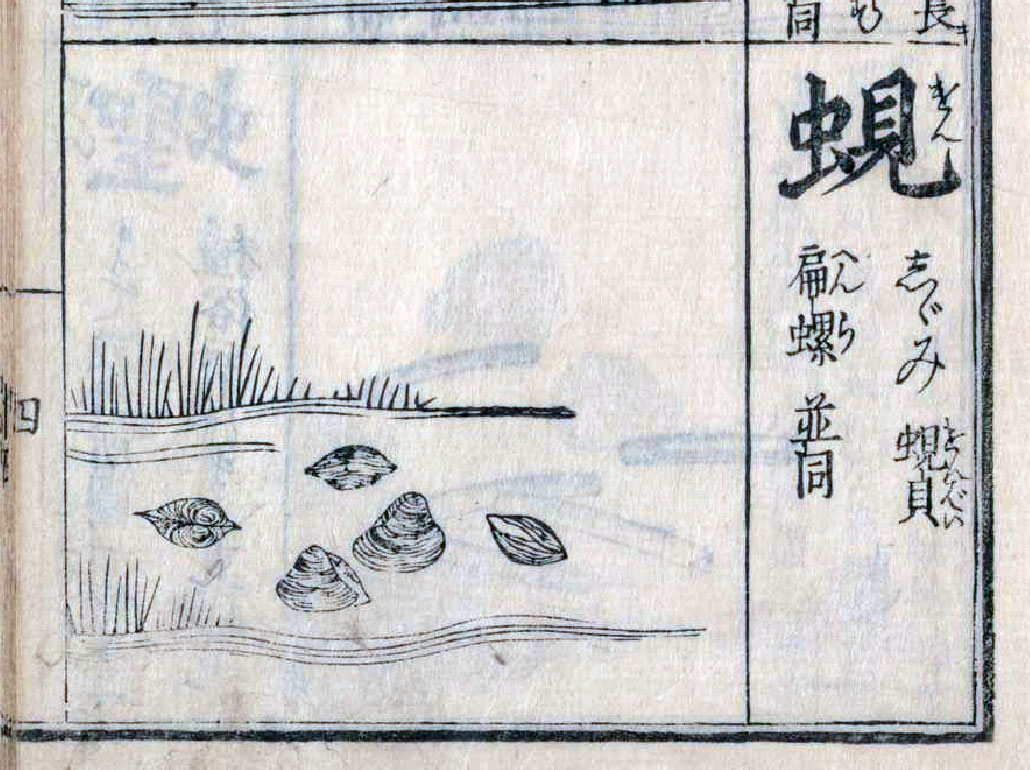 長
同
蜆
けん
しゞみ 蜆貝
扁螺 並同
へんら
四